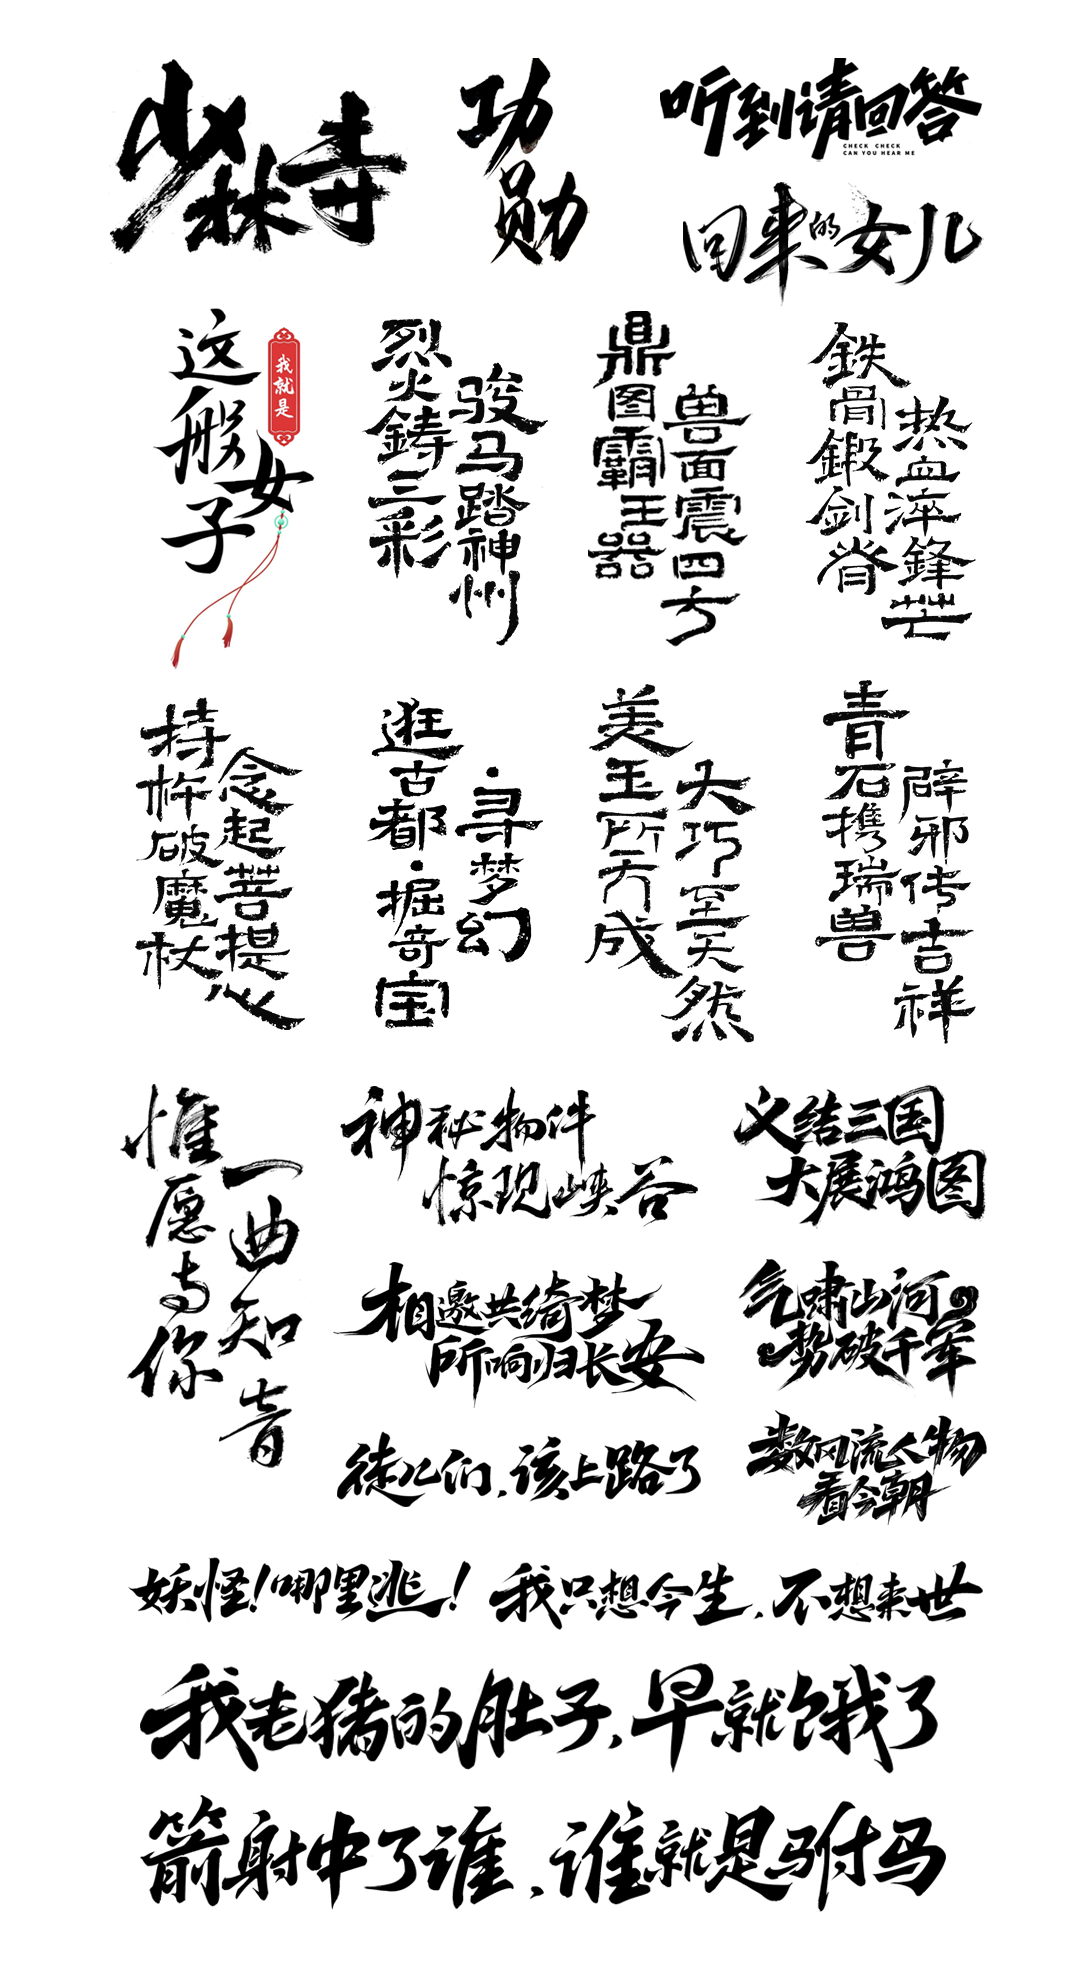 少林寺
功勋
听到请回答
CHECK CHECK
CAN YOU HEAR ME
回来的女儿
我就是
这般女子
烈火鋳三彩
骏马踏神州
鼎图霸王器
兽面震四方
鉄骨鍛剑脊
热血淬鋒芒
持杵破魔杖
念起菩提心
逛古都·掘奇宝
·寻梦幻
美玉所天成
大巧至天然
青石携瑞兽
辟邪传吉祥
惟愿与你
一曲知音
神秘物件
惊现峡谷
义结三国
大展鸿图
相邀共绮梦
所响归长安
气啸山河
势破千军
徒儿们,该上路了
数风流人物
看今朝
妖怪!哪里逃!
我只想今生,不想来世
我老猪的肚子,早就饿了
箭射中了谁,谁就是驸马